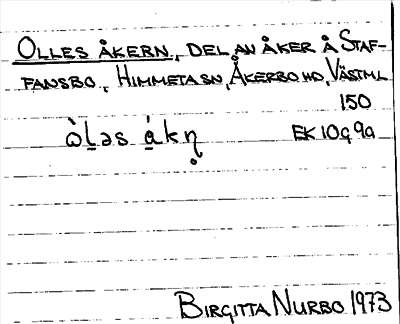 OLLES ÅKERN, DEL AV ÅKER Å STAF-
FANSBO, HIMMETA SN, ÅKERBO HD, VÄSTML
150
ὼl̠əs ά̠kη̥ EK 10g 9a
BIRGITTA NURBO 1973